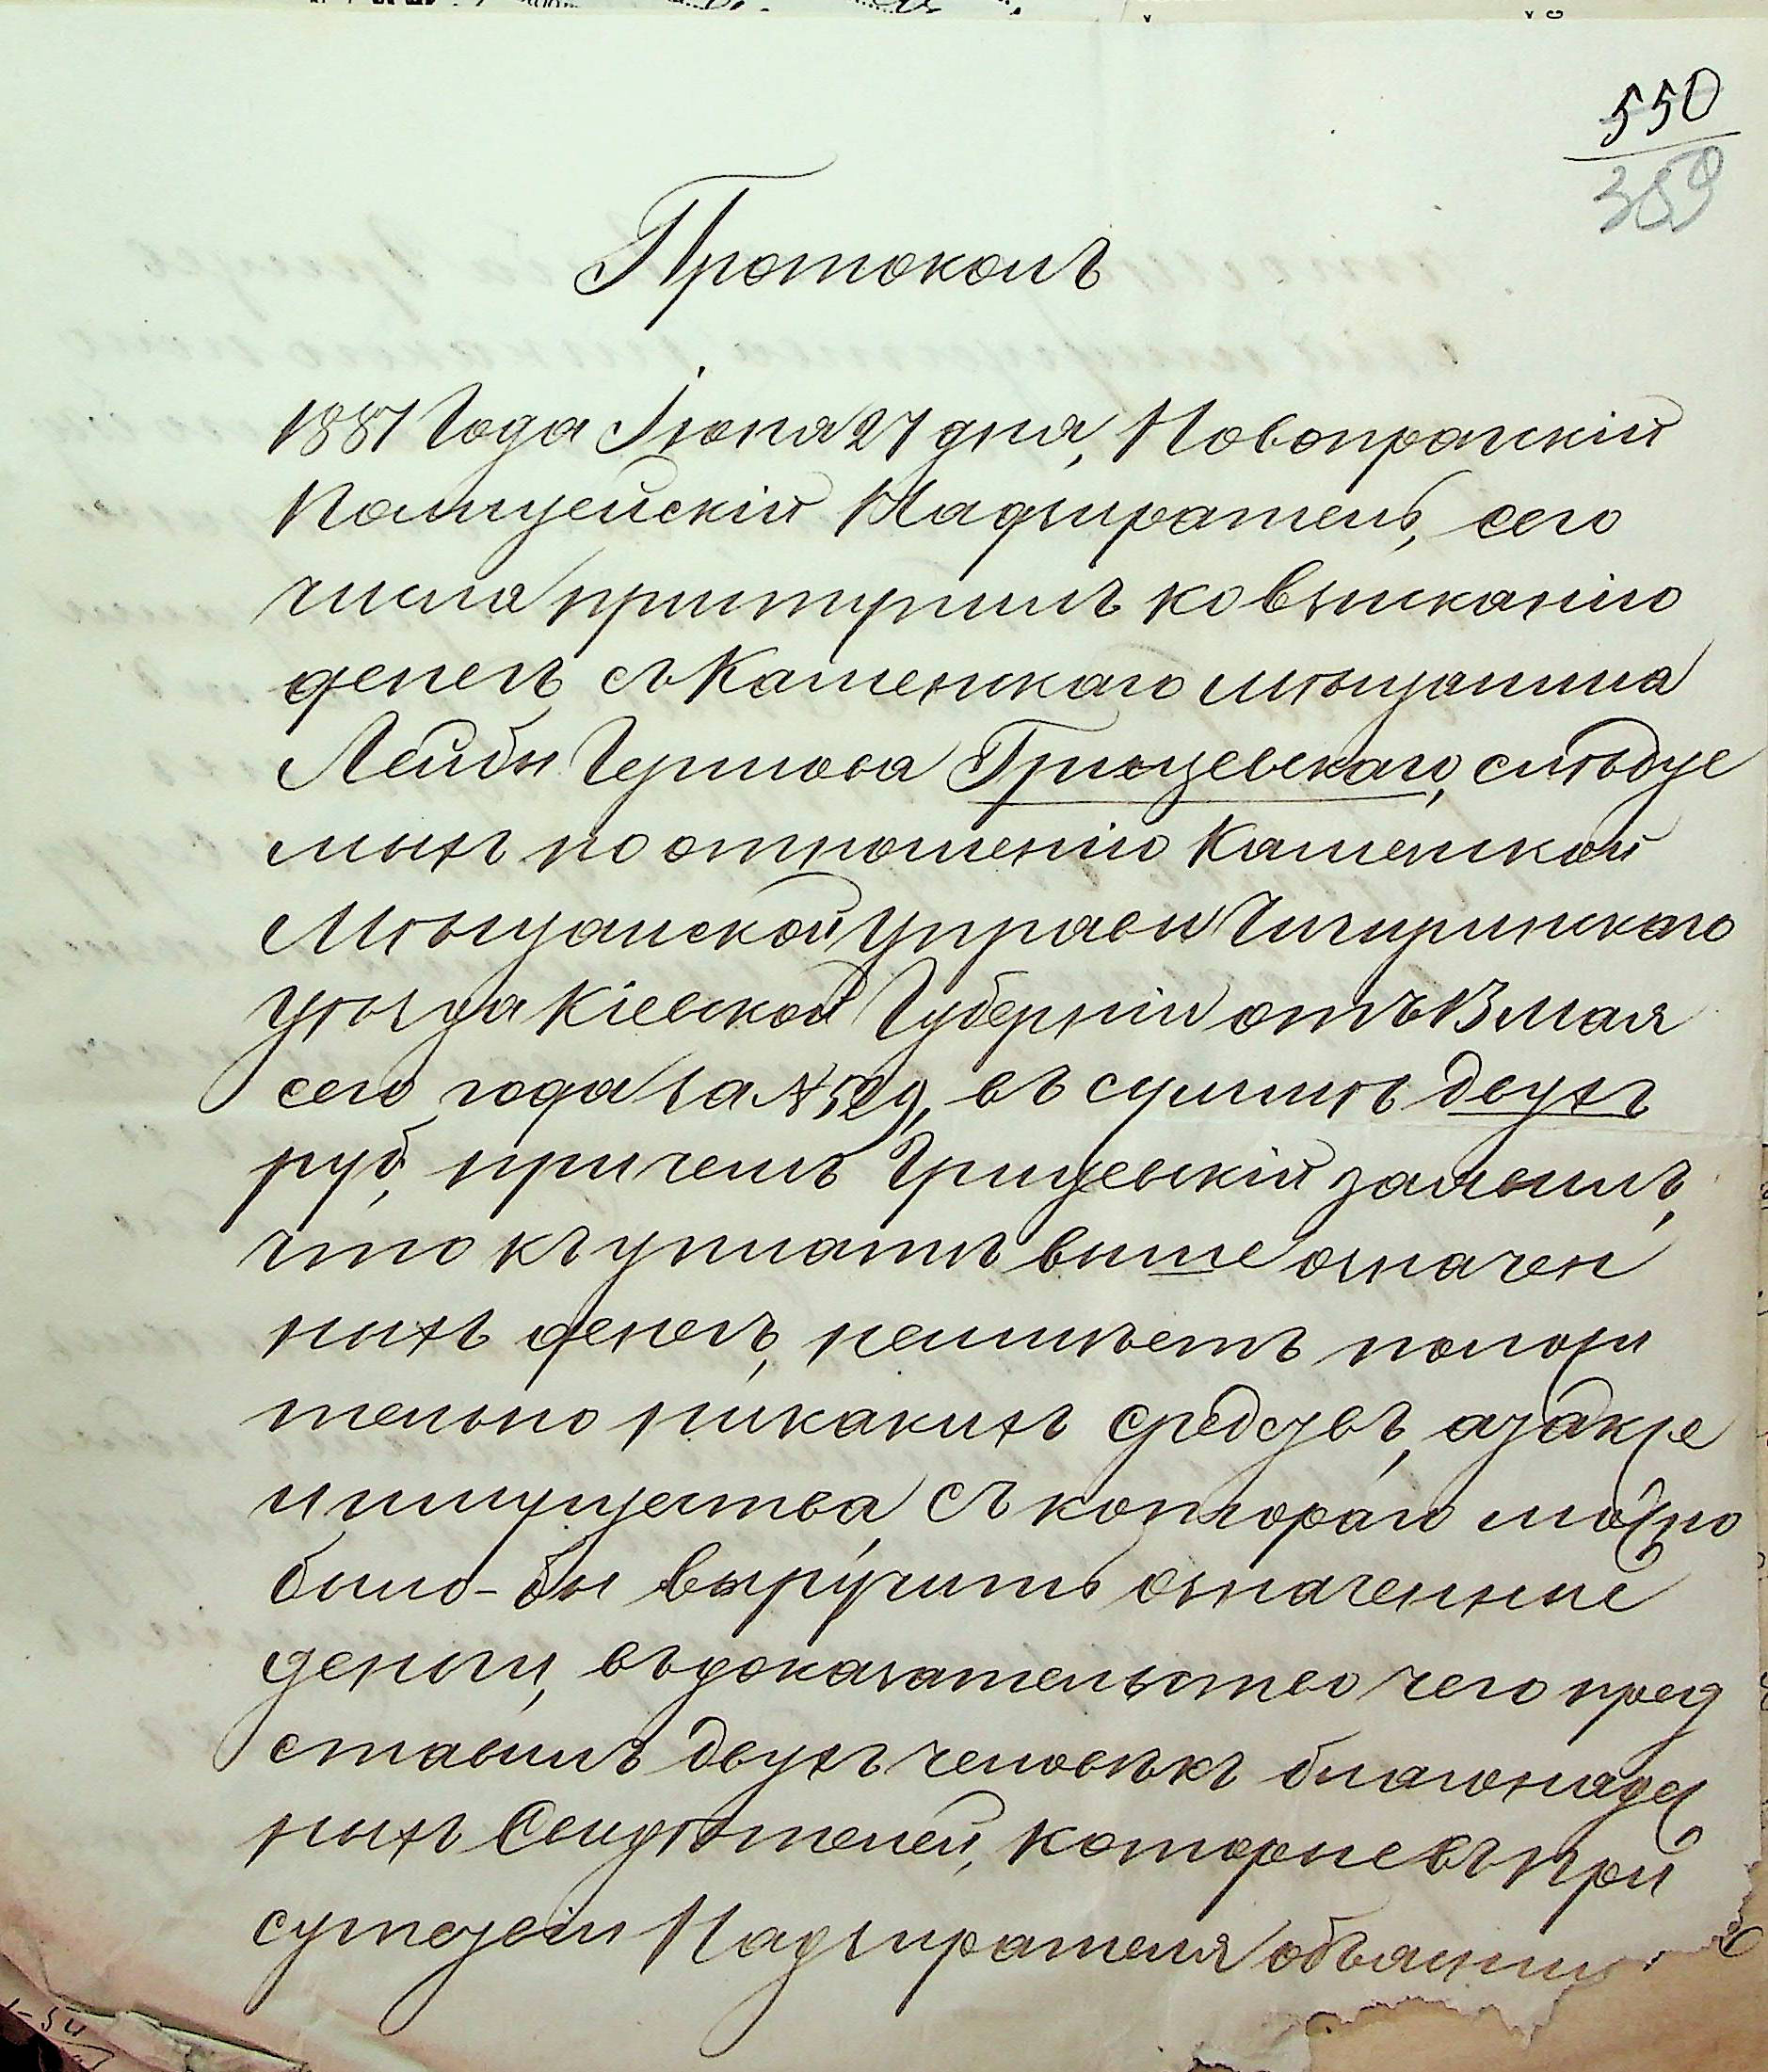 550
359
Протоколъ
1887 Года Іюня 27 дня, Новопражскій
Полицейскій Надзиратель, сего
числа приступилъ ко взысканію
денегъ съ Каменскаго мѣщанина
Лейбы Гершова Грищевскаго, слѣдуе
мыхъ по отношенію Каменской
Мѣщанской Управы Чигиринскаго
Уѣзда Кіевской Губерніи отъ 13 мая
сего года за № 529, въ суммѣ двухъ
руб, при чемъ Грищевскій заявилъ,
что къ уплатѣ выше означен
ныхъ денегъ, неимѣетъ положи
тельно никакихъ средствъ, а также
и имущества, съ котораго можно
было-бы выручить означенные
деньги, въ доказательство чего пред
ставилъ двухъ человѣкъ благонадеж
ныхъ Свидѣтелей, которые въ при
сутствіи Надзирателя объяснили